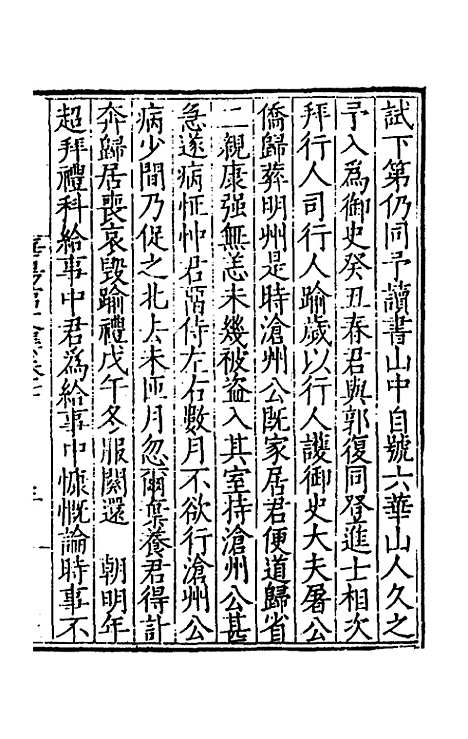 試下第仍同予讀書山中自號六華山人久之
予入爲御史癸丑春君與郭復同登進士相次
拜行人司行人踰歲以行人護御史大夫屠公
僑歸葬明州是時滄州公既家居君便道歸省
二親康强無恙未幾被盜入其室持滄州公甚
急遂病怔忡君留侍左右數月不欲行滄州公
病少間乃促之北上未匝月忽爾棄養君得計
奔歸居喪哀毀踰禮戊午冬服闋還 朝明年
超拜禮科給事中君爲給事中慷慨論時事不